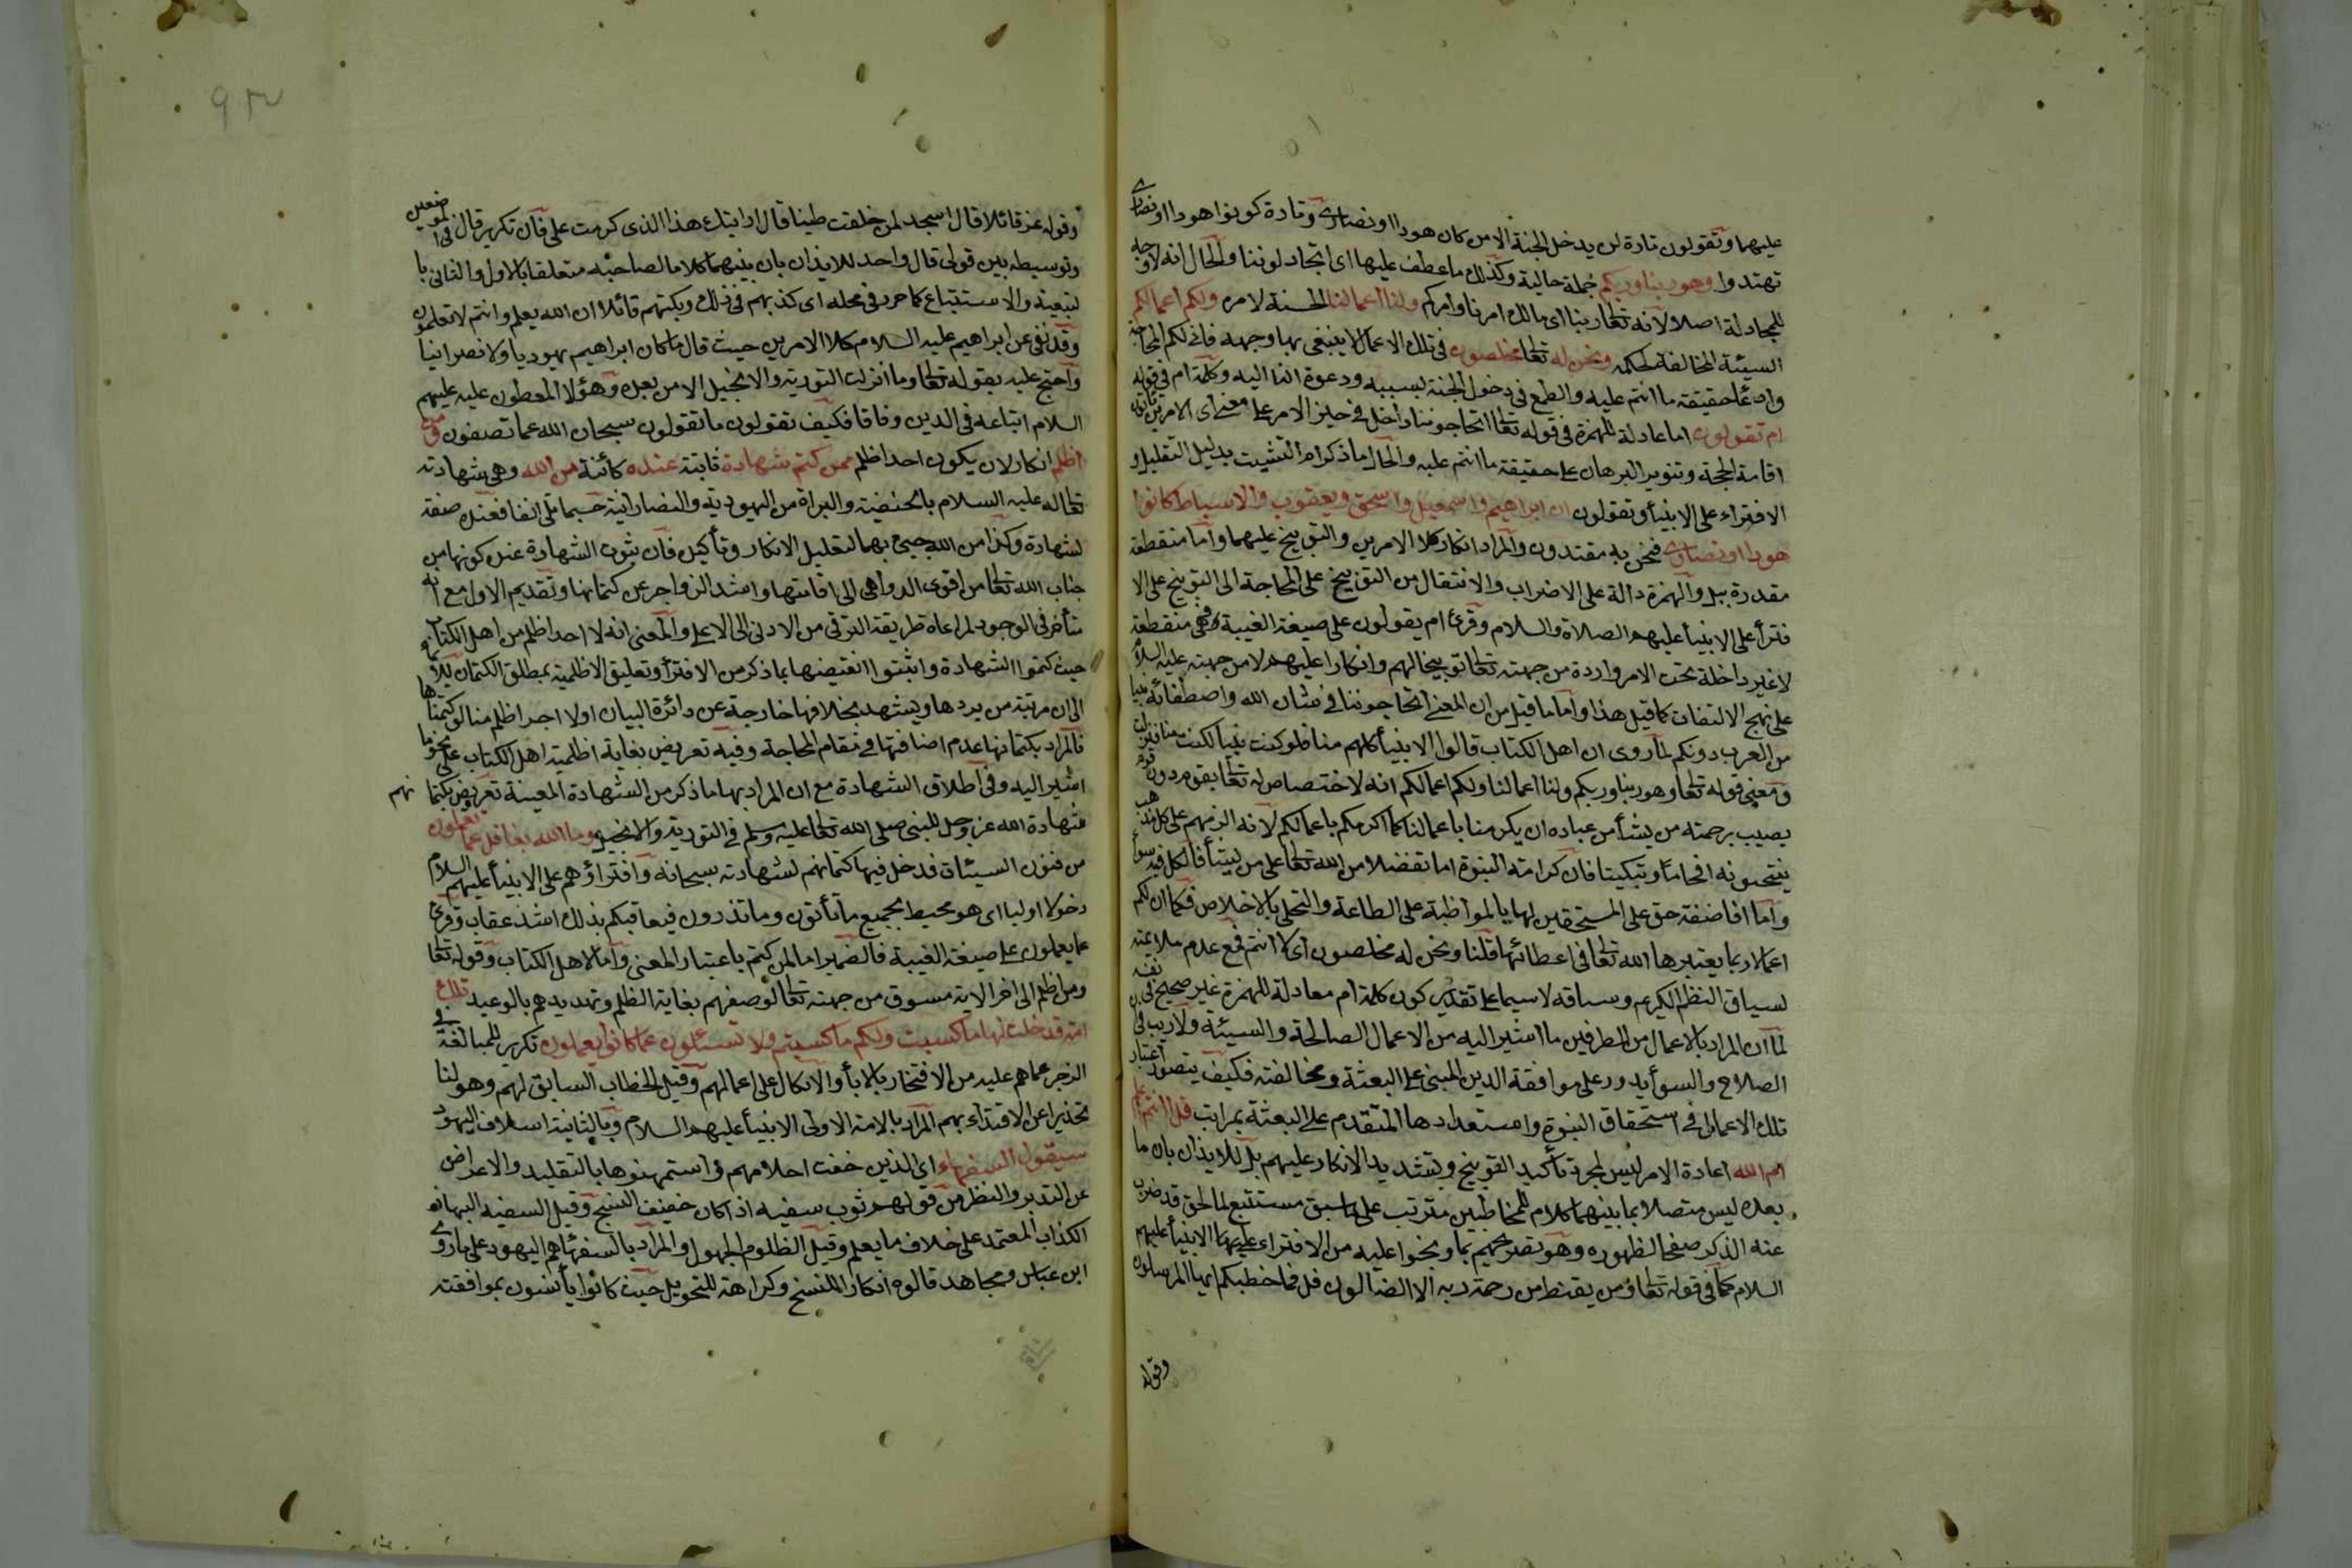 عليهما وتقولون تارة لن يدخل الجنة الا من كان هودا او نصارى وتارة كونوا هودا او نصارى
تهتدوا وهو ربنا وربكم جملة حالية وكذلك ما عطف عليها اى اتجادلوننا والحال انه لا وجه
للمجادلة اصلا لانه تعالى ربنا اى مالك امرنا وامركم ولنا اعمالنا الحسنة لامره ولكم اعمالكم
السيئة المخالفة لحكمه ونحن له تعالى مخلصون فى تلك الاعمال لا ينبغى بها وجهه فانى لكم المحاجة
وادعا حقيقة ما انتم عليه والطمع فى دخول الجنة بسببه ودعوة الناس اليه وكلمة ام فى قوله
ام تقولون اما عادلة للهمزة فى قوله تعالى اتحاجوننا داخل فى حيز الامر على معنى اى الامرين تأتون
اقامة الحجة وتنوير البرهان على حقيقة ما انتم عليه والحال ما ذكر ام التشبث بذيل التقليد و
الافتراء على الانبيأ وتقولون ان ابراهيم واسمعيل واسحق ويعقوب والاسباط كانوا
هودا او نصارى فنحن به مقتدون والمراد انكار كلا الامرين والتوبيخ عليهما واما منقطعة
مقدرة ببل والهمزة دالة على الاضراب والانتقال من التوبيخ على المحاجة الى التوبيخ على الا
فترأ على الانبيأ عليهم الصلاة والسلام وقرئ ام يقولون على صيغة الغيبة فهى منقطعة
لا غير داخلة تحت الامر واردة من جهته تعالى توبيخا لهم وانكارا عليهم لا من جهته عليه السلام
على نهج الالتفات كما قيل هذا واما ما قيل من ان المعنى اتحاجوننا فى شان الله واصطفائه نبيا
من العرب دونكم لما روى ان اهل الكتاب قالوا الانبيأ كلهم منا فلو كنت نبيا لكنت منا فنزلت
ومعنى قوله تعالى وهو ربنا وربكم ولنا اعمالنا ولكم اعمالكم انه لا اختصاص له تعالى بقوم دون قوم
يصيب برحمته من يشأ من عباده ان يكرمنا باعمالنا كما اكرمكم باعمالكم لانه الزمهم على كل مذهب
ينتحونه افحاما وتبكيتا فان كرامة النبوة اما تفضلا من الله تعالى على من يشأ فالكل فيه سوا
واما افاضة حق على المستحقين لها بالمواظبة على الطاعة والتحلى بالاخلاص فكما ان لكم
اعمالا ربما يعتبرها الله تعالى فى اعطائها فلنا ونحن له مخلصون اى لا انتم فمع عدم ملايمته
لسياق النظم الكريم وسباقه لا سيما على تقدير كون كلمة ام معادلة للهمزة غير صحيح فى نفسه
لما ان المراد بالاعمال من الطرفين ما اشير اليه من الاعمال الصالحة والسيئة ولا ريب فى ان
الصلاح والسوأ يدور على موافقة الدين المبنى على البعثة ومخالفته فكيف يتصور اعتبار
تلك الاعمال فى استحقاق النبوة واستعدادها المتقدم على البعثة بمراتب قل اانتم اعلم
ام الله اعادة الامر ليس لمجرد تأكيد التوبيخ وتشديد الانكار عليهم بل للايذان بان ما
بعده ليس متصلا بما بينهما كلام للمخاطبين مترتب على ما سبق مستتبع لما لحق قد ضرب
عنه الذكر صفحا لظهوره وهو تصريحهم بما وبخوا عليه من الافتراء على الانبيأ عليهم
السلام كما فى قوله تعالى ومن يقنط من رحمة ربه الا الضالون قل فما خطبكم ايها المرسلون
وقوله
وقوله عز قائلا قال اسجد لمن خلقت طينا قال ارايتك هذا الذى كرمت على فان تكرير قال فى الموضعين
وتوسيطه بين قولى قال واحد للايذان بان بينهما كلاما لصاحبه متعلقا بالاول والثانى با
لتبعية والاستتباع كما حرر فى محله اى كذبهم فى ذلك وبكتهم قائلا ان الله يعلم وانتم لا تعلمون
وقد نفى عن ابراهيم عليه السلام كلا الامرين حيث قال ما كان ابراهيم يهوديا ولا نصرانيا
واحتج عليه بقوله تعالى وما انزلت التورية والانجيل الا من بعده وهؤلا المعطون عليه عليهم
السلام اتباعه فى الدين وفاقا فكيف تقولون ما تقولون سبحان الله عما تصفون ومن
اظلم انكار لان يكون احد اظلم ممن كتم شهادة ثابتة عنده كائنة من الله وهى شهادته
تعالى له عليه السلام بالحنيفية والبراة من اليهودية والنصرانية حسبما تلى انفا فعنده صفة
لشهادة وكذا من الله جيئ بهما لتعليل الانكار وتأكيده فان ثبوت الشهادة عنده كونها من
جناب الله تعالى من اقوى الدواعى الى اقامتها واشد الزواجر عن كتمانها وتقديم الاول مع انه
متأخر فى الوجود لمراعاة طريقة الترقى من الادنى الى الاعلى والمعنى انه لا احد اظلم من اهل الكتاب
حيث كتموا الشهادة واثبتوا نقيضها بما ذكر من الافترأ وتعليق الاظلمية بمطلق الكتمان للايماء
الى ان مرتبة من يردها ويشهد بخلافها خارجة عن دائرة البيان او لا احد اظلم منا لو كتمناها
فالمراد بكتمانها عدم اضافتها فى مقام المحاجة وفيه تعريض بغاية اظلمية اهل الكتاب على نحو ما
اشير اليه وفى اطلاق الشهادة مع ان المراد بها ما ذكر من الشهادة المعينة تعريض بكتمانهم
شهادة الله عز وجل للنبى صلى الله تعالى عليه وسلم فى التورية والانجيل وما الله بغافل عما تعملون
من فنون السيئات فدخل فيها كتمانهم لشهادته سبحانه وافتراؤهم على الانبيأ عليهم السلام
دخولا اوليا اى هو محيط بجميع ما تأتون وما تذرون فيعاقبكم بذلك اشد عقاب وقرئ
عما يعملون على صيغة الغيبة فالضمير اما لمن كتم باعتبار المعنى واما لاهل الكتاب وقوله تعالى
ومن اظلم الى اخر الاية مسوق من جهته تعالى لوصفهم بغاية الظلم وتهديدهم بالوعيد تلك
امة قد خلت لها ما كسبت ولكم ما كسبتم ولا تسئلون عما كانوا يعملون تكرير للمبالغة فى
الزجر عما هم عليه من الافتخار بالابأ والاتكال على اعمالهم وقيل الخطاب السابق لهم وهو لنا
تحذيرا عن الاقتداء بهم المراد بالامة الاولى الانبيأ عليهم السلام وبالثانية اسلاف اليهود
سيقول السفهاء اى الذين خفت احلامهم واستمهنوها بالتقليد والاعراض
عن التدبر والنظر من قولهم ثوب سفيه اذا كان خفيف النسج وقيل السفيه البهات
الكذاب المعتمد على خلاف ما يعلم وقيل الظلوم الجهول والمراد بالسفهأ هم اليهود على ما روى
ابن عباس ومجاهد قالوه انكارا للنسخ وكراهة للتحويل حيث كانوا يأنسون بموافقته